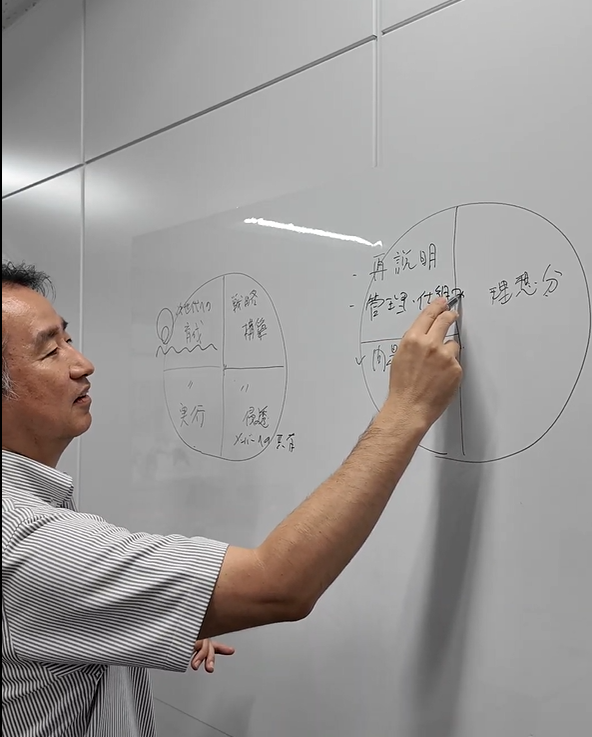 育成
戦略
構築
〃
実行
〃
浸透
メンバーへの共有
- 再説明
- 管理・仕組み
✓ 問
理想・分